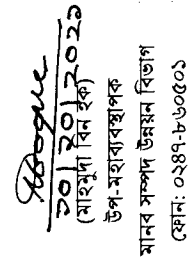 ৩০/১০/২০২১
(মাহমুদা বিন হক)
উপ-মহাব্যবস্থাপক
মানব সম্পদ উন্নয়ন বিভাগ
ফোন: ০২৪৭-৮৬০৫০১